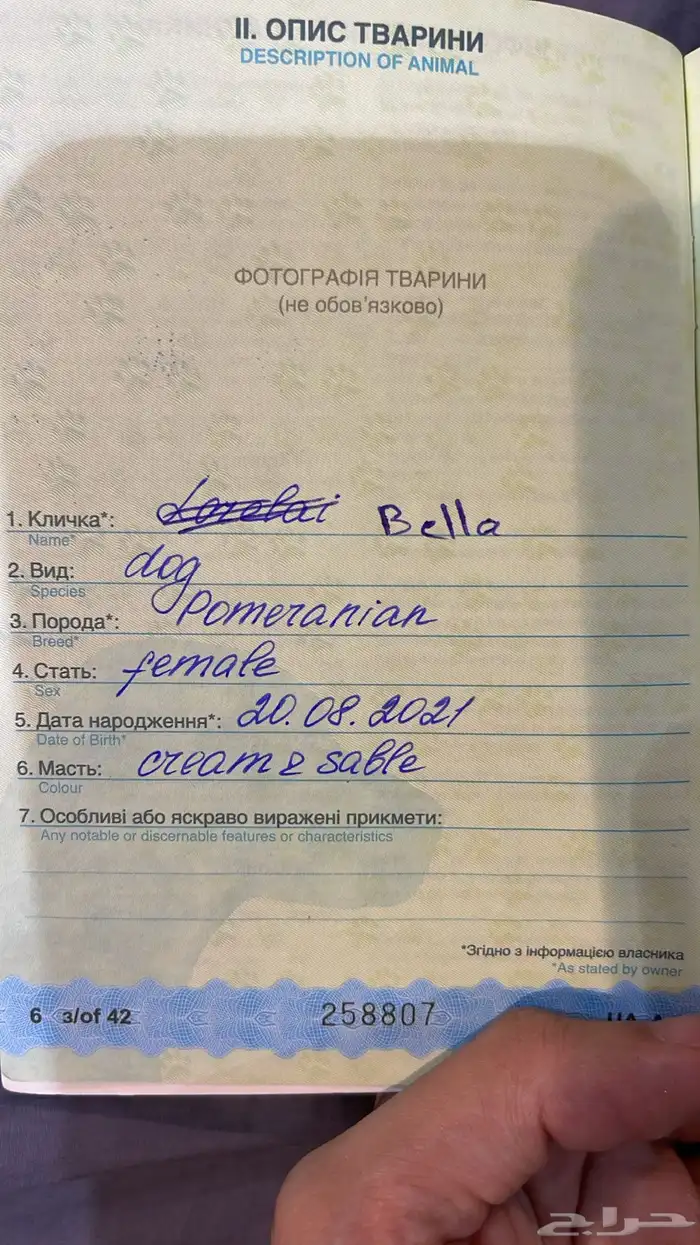 II. ОПИС ТВАРИНИ
DESCRIPTION OF ANIMAL
ФОТОГРАФІЯ ТВАРИНИ
(не обов'язково)
1. Кличка*: Lorelai Bella
Name*
2. Вид: dog
Species
3. Порода*: Pomeranian
Breed*
4. Стать: female
Sex
5. Дата народження*: 20.08.2021
Date of Birth*
6. Масть: cream & sable
Colour
7. Особливі або яскраво виражені прикмети:
Any notable or discernable features or characteristics
*Згідно з інформацією власника
*As stated by owner
6 з/of 42 258807
حراج